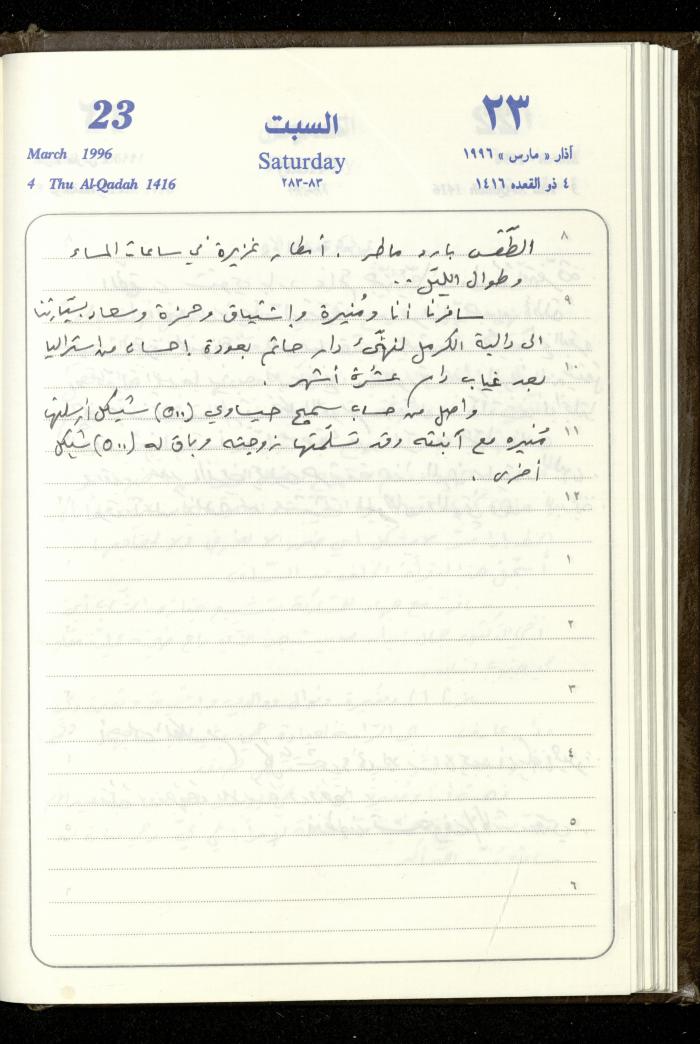 23
السبت
٢٣
March 1996
Saturday
آذار « مارس » ١٩٩٦
4 Thu Al-Qadah 1416
٢٨٣-٨٣
٤ ذو القعده ١٤١٦
٨
الطّقس بارد ماطر . أمطار غزيرة في ساعات المساء
وطوال الليل . .
٩
سافرنا أنا ومُنيرة واشتياق وحمزة وسعاد بسيّارتنا
الى دالية الكرمل لنهنّئ دار حاتم بعودة احسان من استراليا
١٠
بعد غياب دام عشرة أشهر .
واصل من حساب سميح حيساوي (٥٠٠) شيكل أرسلتها
١١
مُنيره مع آبنته وقد تسلّمتها زوجته وباق له (٥٠٠) شيكل
أخرى .
١٢
١
٢
٣
٤
٥
٦